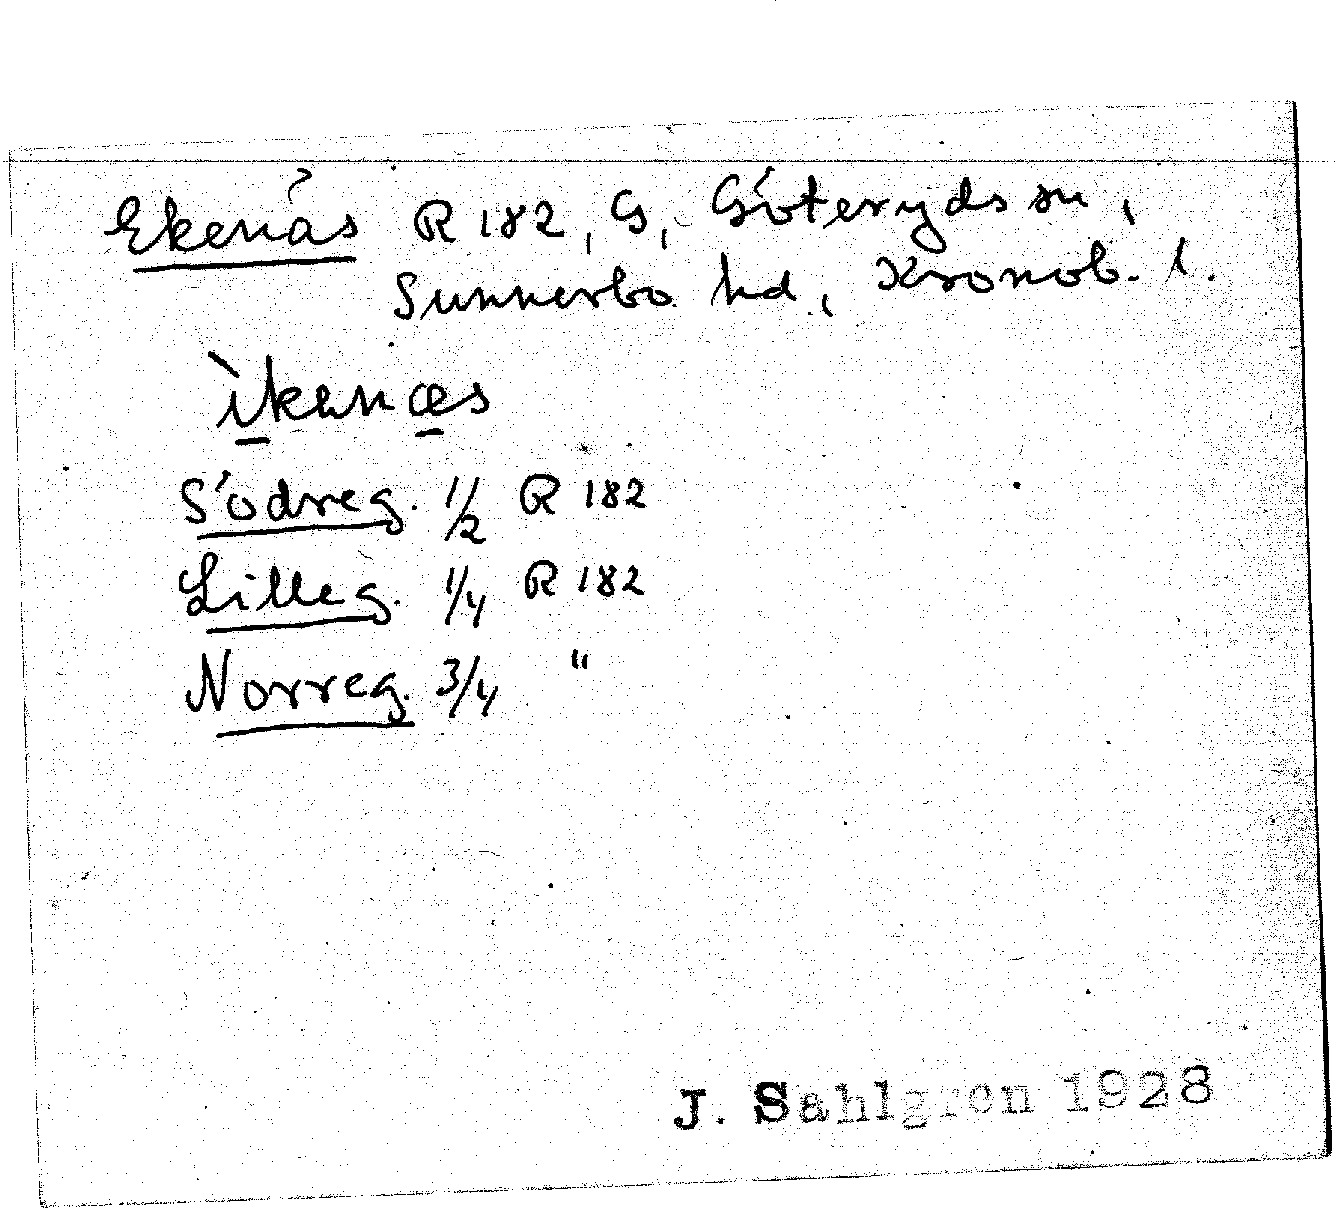 Ekenäs R 182, G, Göteryds sn,
Sunnerbo hd, Kronob. l.
ìkenæs
Södreg. 1/2 R 182
Lilleg. 1/4 R 182
Norreg. 3/4 "
J. Sahlgren 1928